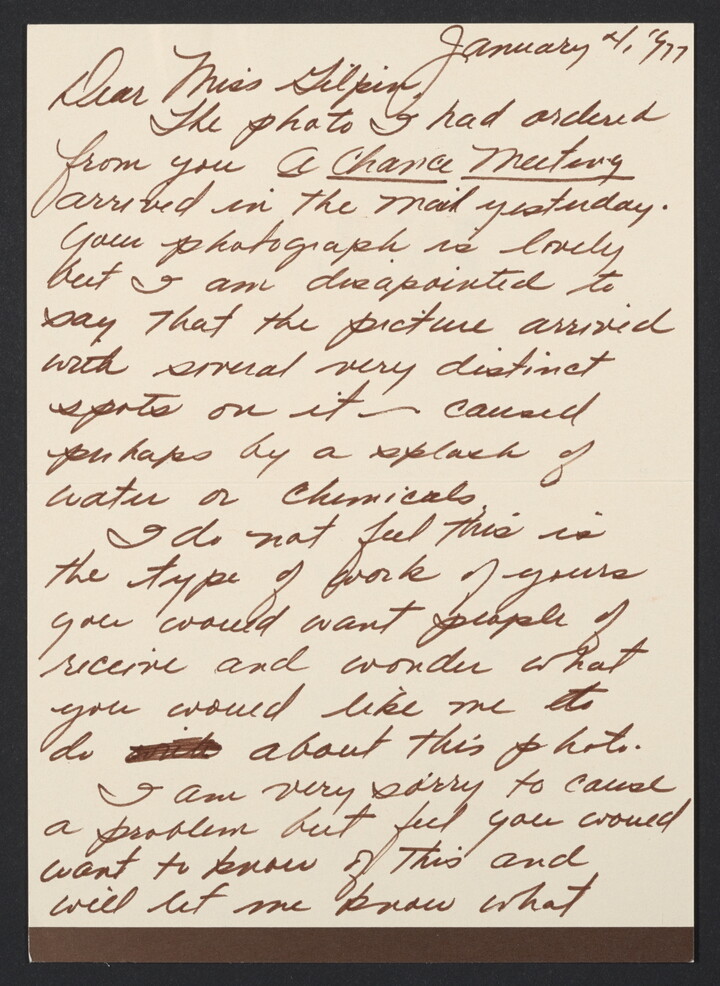 January 4, 1977
Dear Miss Gilpin,
The photo I had ordered
from you A Chance Meeting
arrived in the mail yesterday.
Your photograph is lovely
but I am disapointed to
say that the picture arrived
with several very distinct
spots on it — caused
perhaps by a splash of
water or chemicals.
I do not feel this is
the type of work of yours
you would want people of
receive and wonder what
you would like me to
do about this photo.
I am very sorry to cause
a problem but feel you would
want to know of this and
will let me know what